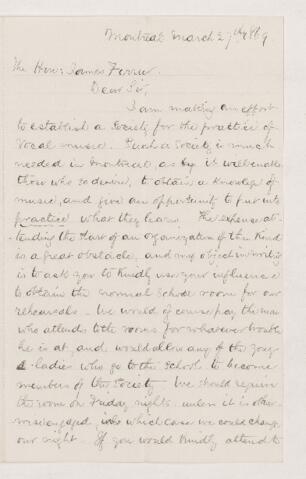 Montreal March 27th 1869
The Hon: James Ferrier.
Dear Sir,
I am making an effort
to establish a Society for the practice of
Vocal music. Such a Society is much
needed in Montreal as by it will enable
those who so desire, to obtain a knowledge of
music, and give an opportunity to put into
practice what they learn. The expense at-
-tending the start of an organization of this kind
is a great obstacle, and my object in writing
is to ask you to kindly use your influence
to obtain the Normal School room for our
rehearsals. We would of course pay the man
who attends to the rooms for whatever trouble
he is at, and would allow any of the young
ladies who go to the School to become
members of the Society. We should require
the room on Friday nights unless it is other-
wise engaged, in which case we could change
our night. If you would kindly attend to